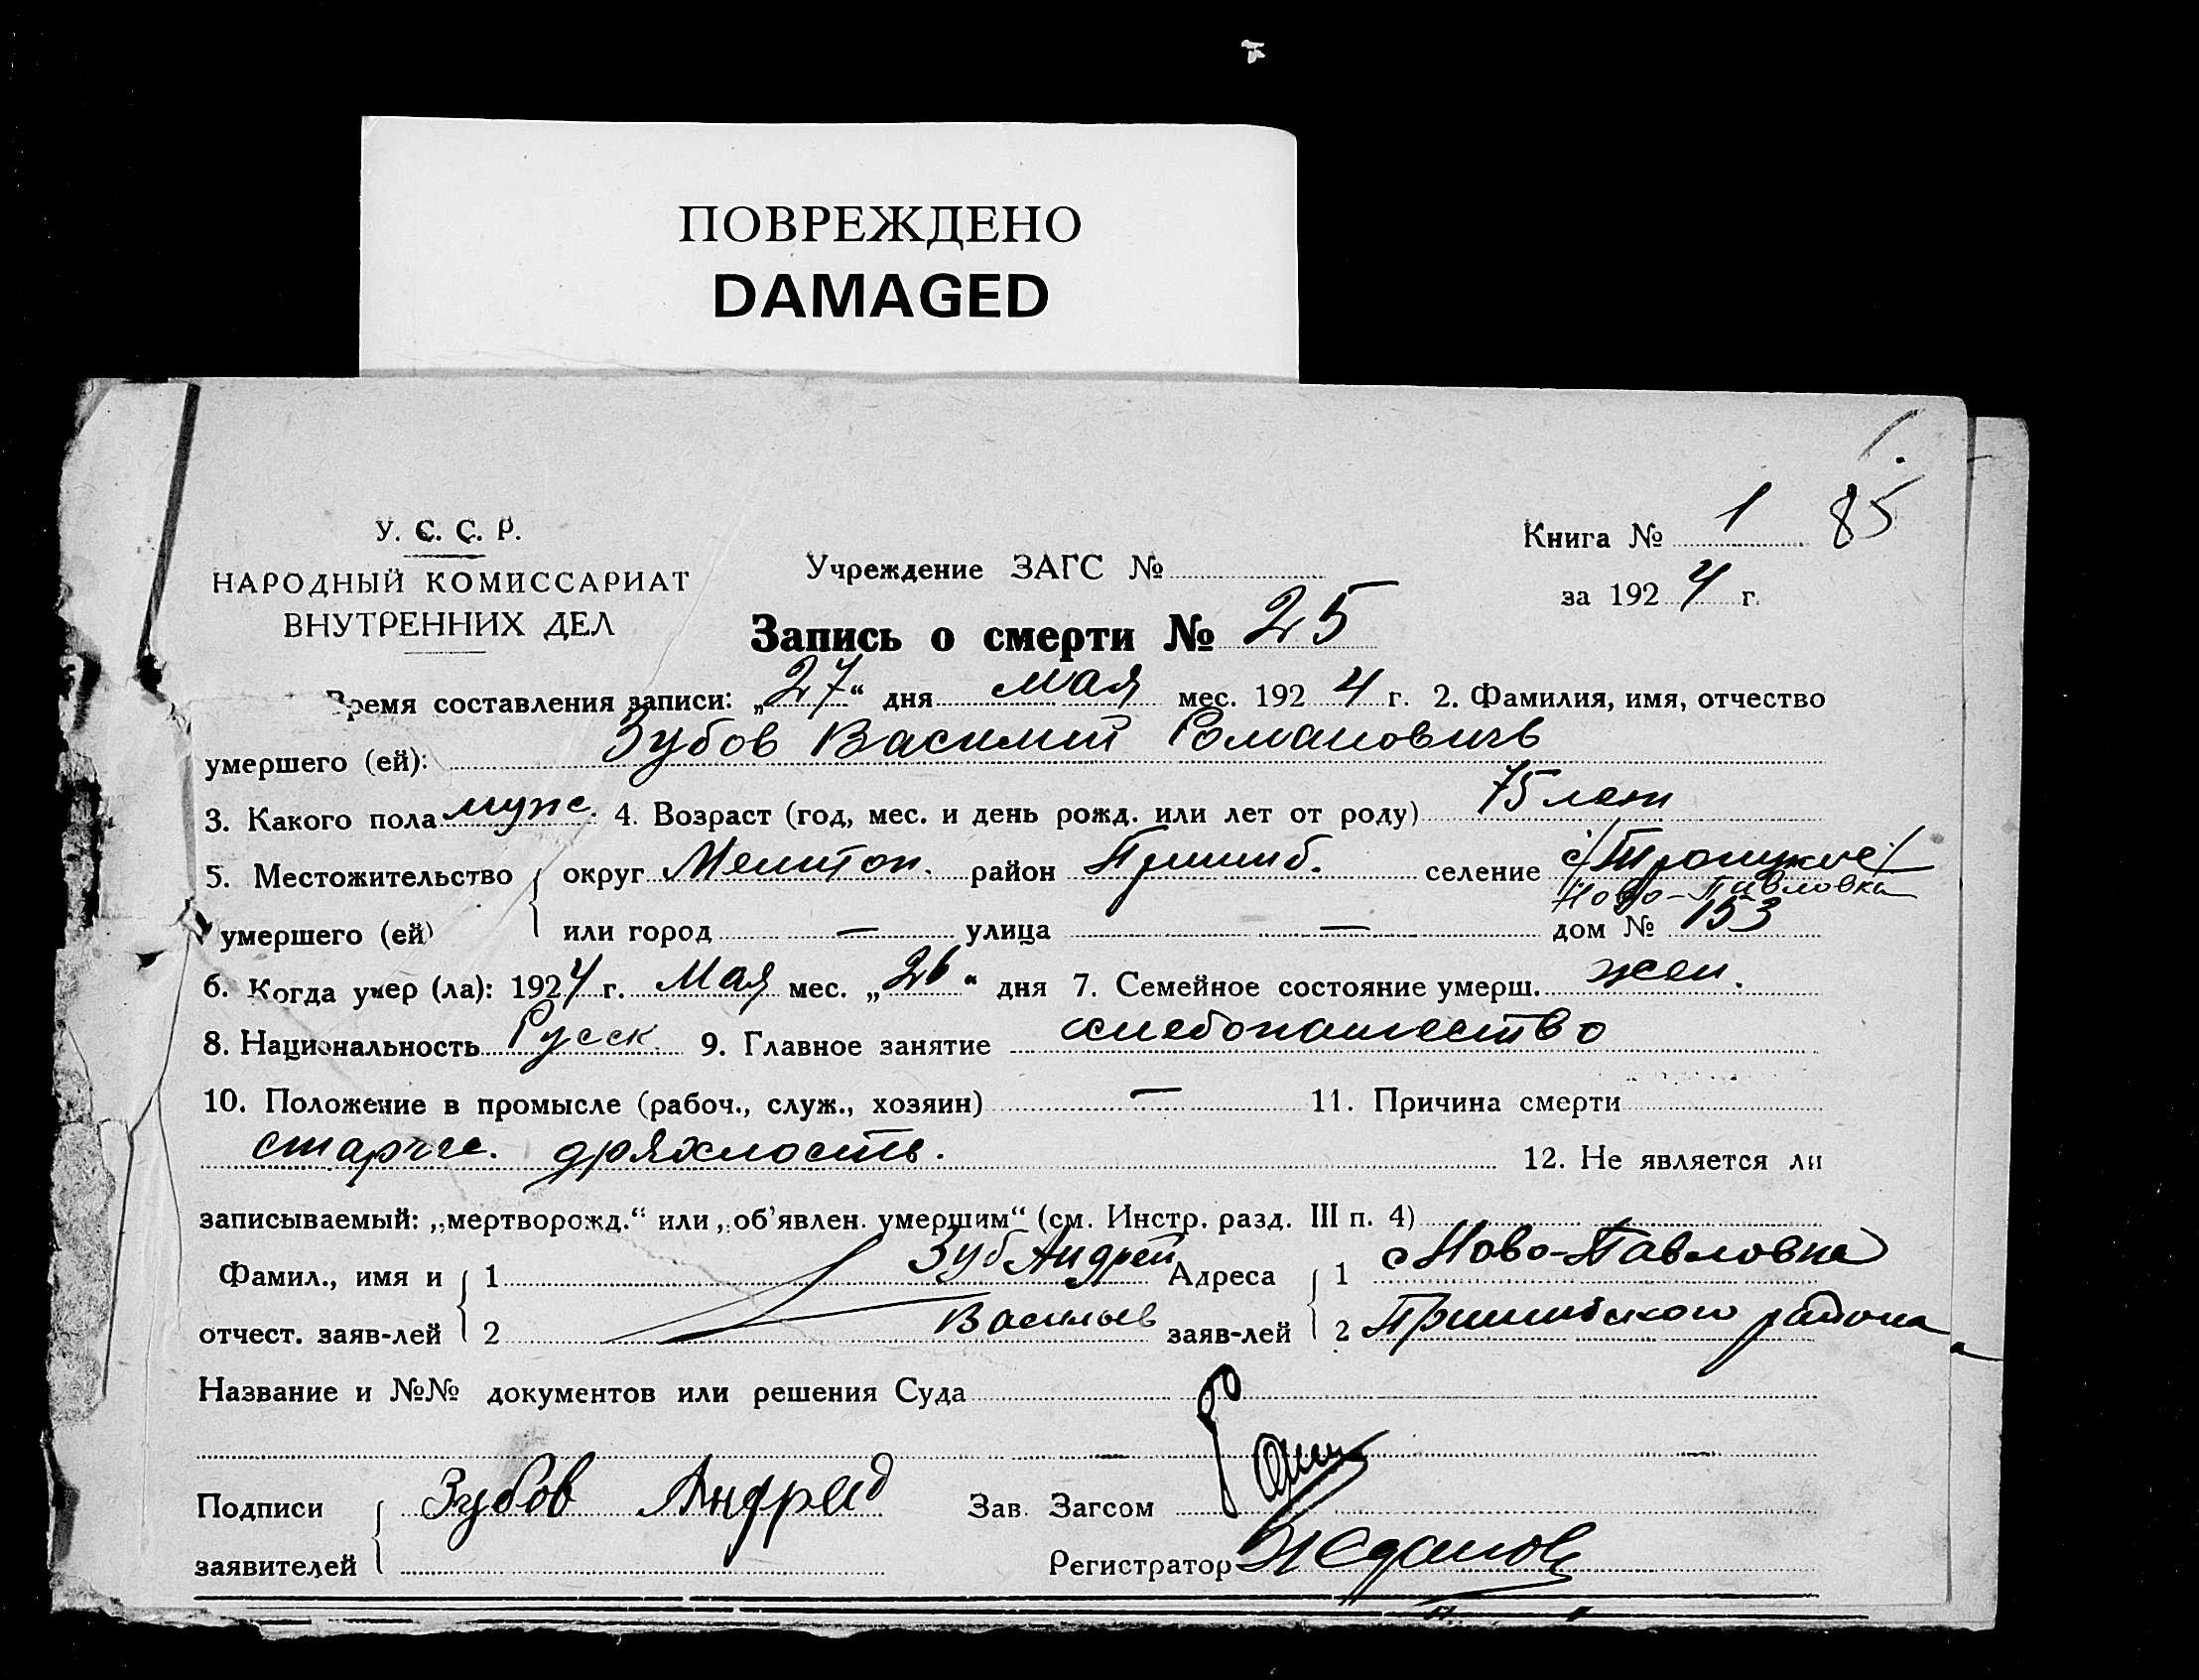 ПОВРЕЖДЕНО
DAMAGED
У. С. С. Р.
НАРОДНЫЙ КОМИССАРИАТ
ВНУТРЕННИХ ДЕЛ
Учреждение ЗАГС №
Книга № 1 85
за 1924 г.
Запись о смерти № 25
Время составления записи: „27“ дня мая мес. 1924 г. 2. Фамилия, имя, отчество
умершего (ей): Зубов Василий Романовичъ
3. Какого пола муж. 4. Возраст (год, мес. и день рожд. или лет от роду) 75 лет
5. Местожительство округ Мелитоп. район Пришиб. селение
Ново-Павловка
умершего (ей) или город — улица — дом № 153
6. Когда умер (ла): 1924 г. Мая мес. „26“ дня 7. Семейное состояние умерш. жен.
8. Национальность Русск. 9. Главное занятие хлебопашество
10. Положение в промысле (рабоч., служ., хозяин) — 11. Причина смерти
старче. дряхлость. 12. Не является ли
записываемый: „мертворожд.“ или „об'явлен. умершим“ (см. Инстр. разд. III п. 4)
Фамил., имя и 1 Зуб Андрей Адреса 1 с Ново-Павловка
отчест. заяв-лей 2 Васильев заяв-лей 2 Пришибского района
Название и №№ документов или решения Суда
Подписи Зубов Андрей Зав. Загсом
заявителей Регистратор